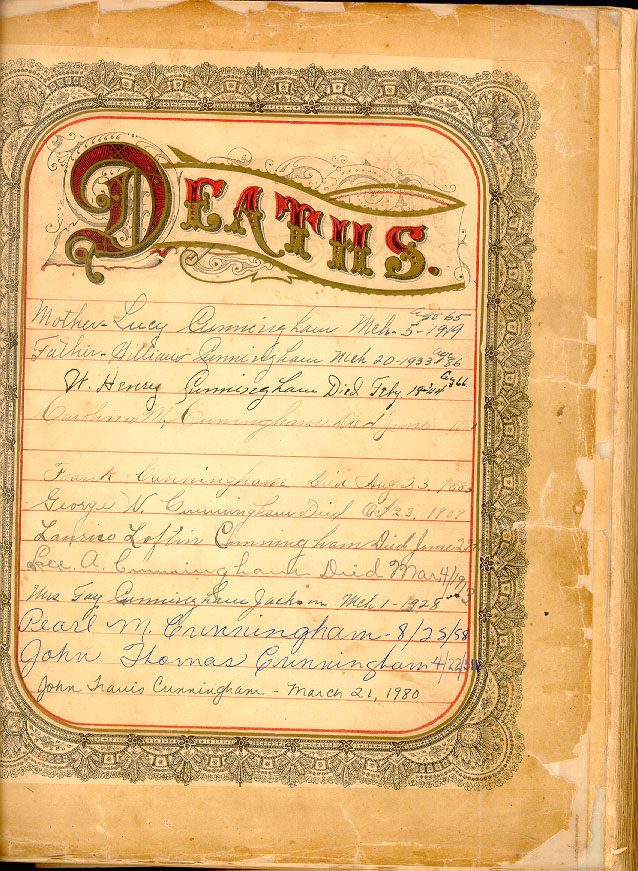 DEATHS.
Age 65
Mother - Lucy Cunningham Mch. 5 - 1919
Father - William Cunningham Mch 20 - 1933 Age 86
W. Henry Cunningham Died Feby 18 - 44 Age 66
Caroline W. Cunningham Died June
Frank Cunningham Died Aug 23, 
George W. Cunningham Died Oct 23, 
Loftin Cunningham Died June
Lee. A. Cunningham Died Mar 4/19
Mrs Fay Cunningham Jackson Mch 1 - 1928
Pearl M. Cunningham - 8/25/58
John Thomas Cunningham 4/22/
John Travis Cunningham - March 21, 1980